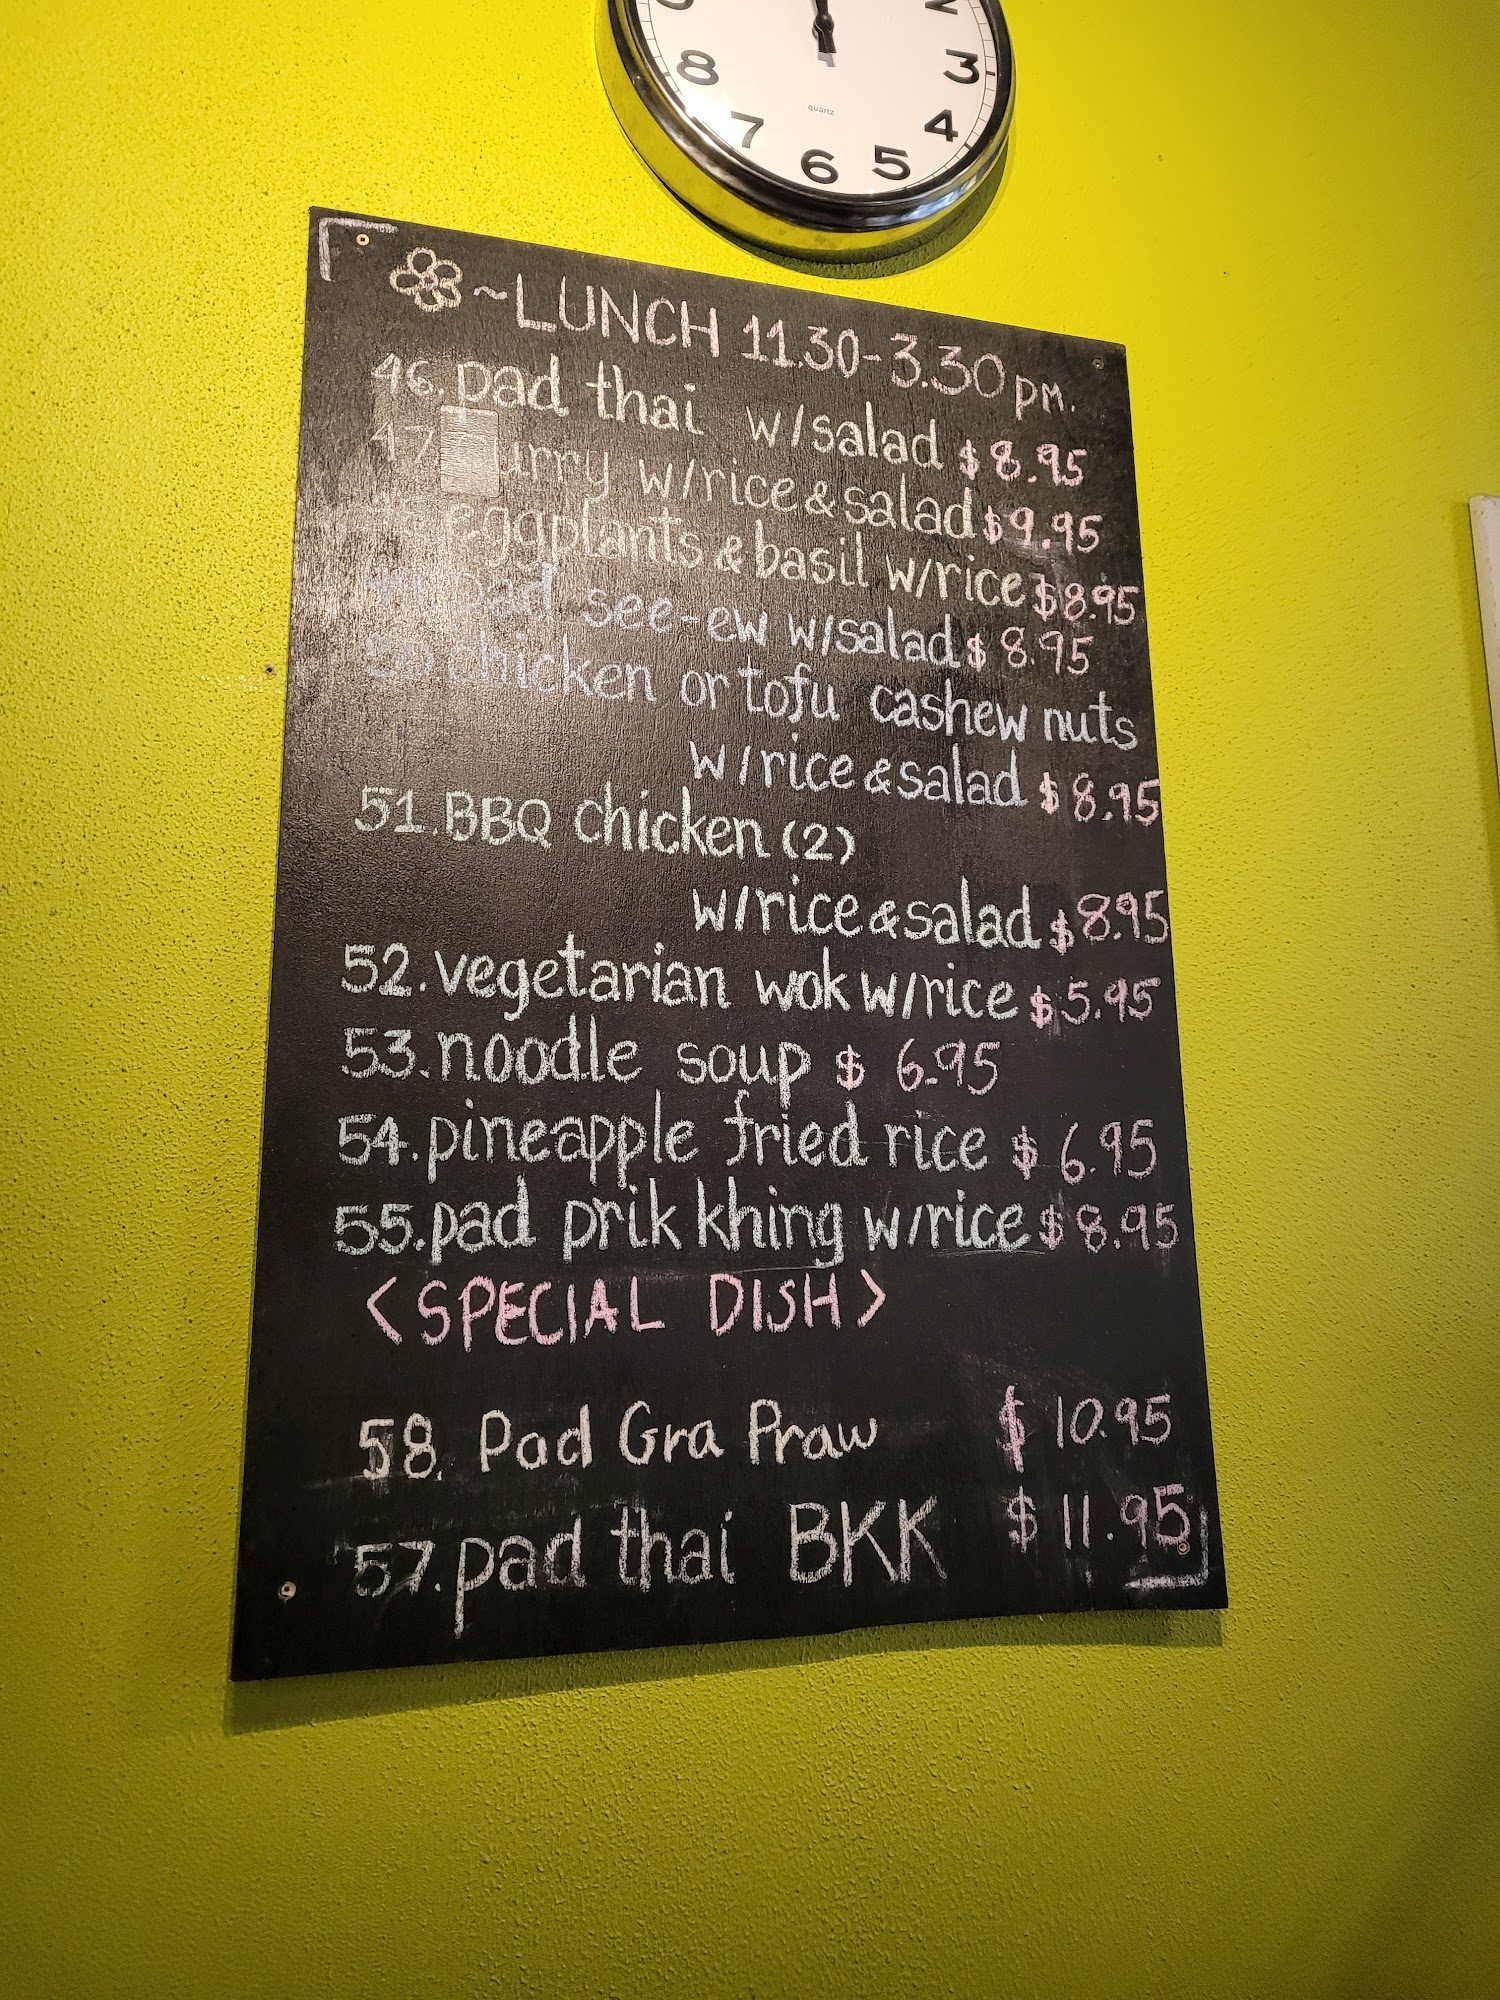 2
3
8
4
7
5
6
quartz
~LUNCH 11.30-3.30 pm.
46. pad thai w/salad $8.95
47. urry w/rice & salad $9.95
eggplants & basil w/rice $8.95
pad see-ew w/salad $8.95
50. chicken or tofu cashew nuts
w/rice & salad $8.95
51. BBQ chicken (2)
w/rice & salad $8.95
52. vegetarian wok w/rice $5.95
53. noodle soup $ 6.95
54. pineapple fried rice $ 6.95
55. pad prik khing w/rice $8.95
<SPECIAL DISH>
58. Pad Gra Praw $ 10.95
57. pad thai BKK $ 11.95